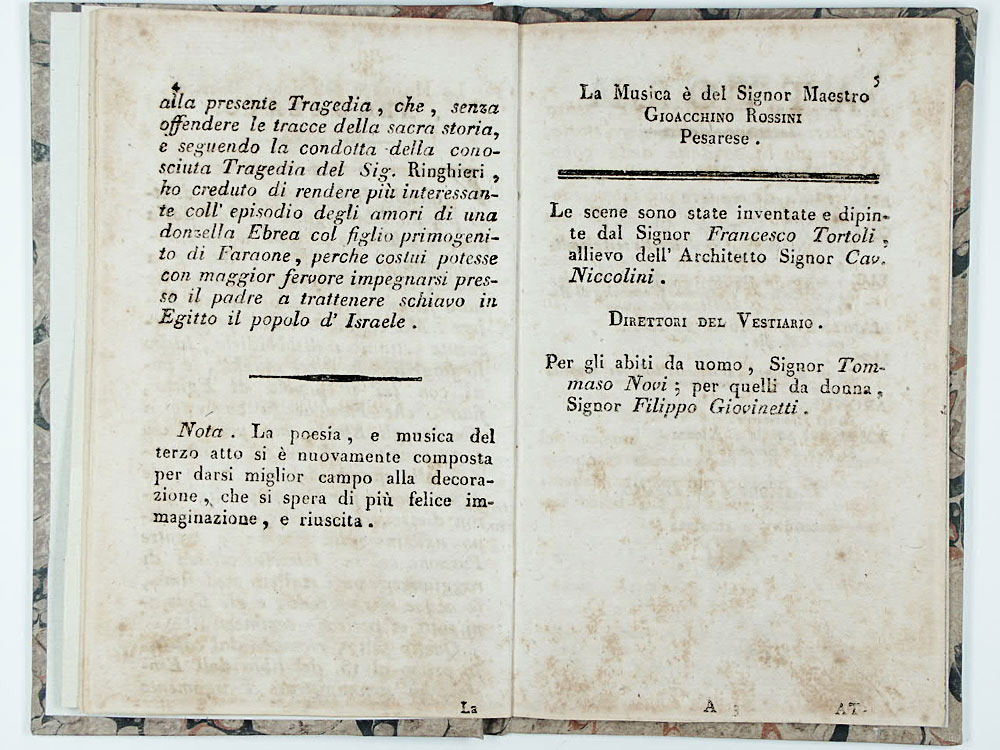 4
alla presente Tragedia, che, senza
offendere le tracce della sacra storia,
e seguendo la condotta della cono-
sciuta Tragedia del Sig. Ringhieri,
ho creduto di rendere più interessan-
te coll' episodio degli amori di una
donzella Ebrea col figlio primogeni-
to di Faraone, perche costui potesse
con maggior fervore impegnarsi pres-
so il padre a trattenere schiavo in
Egitto il popolo d' Israele.
Nota. La poesia, e musica del
terzo atto si è nuovamente composta
per darsi miglior campo alla decora-
zione, che si spera di più felice im-
maginazione, e riuscita.
La
5
La Musica è del Signor Maestro
GIOACCHINO ROSSINI
Pesarese.
Le scene sono state inventate e dipin-
te dal Signor Francesco Tortoli,
allievo dell' Architetto Signor Cav.
Niccolini.
DIRETTORI DEL VESTIARIO.
Per gli abiti da uomo, Signor Tom-
maso Novi; per quelli da donna,
Signor Filippo Giovinetti.
A 3 AT-